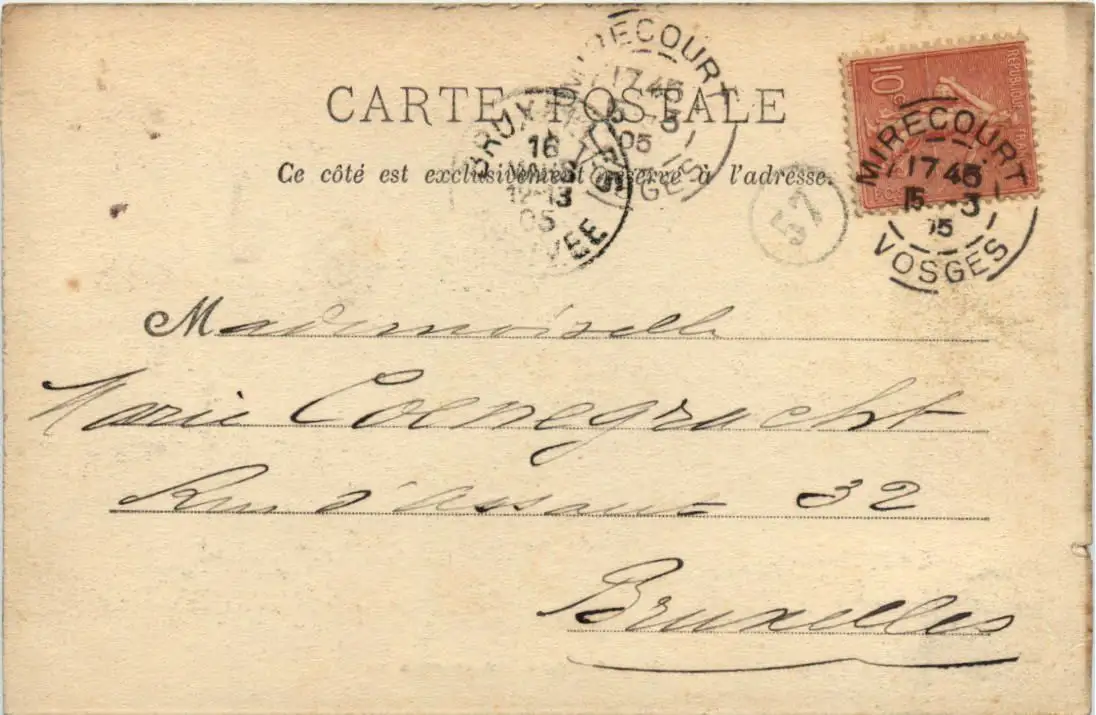 MIRECOURT
17 45
15 -3
05
VOSGES
CARTE POSTALE
BRUXELLES
16
MARS
12-13
05
ARRIVEE
Ce côté est exclusivement réservé à l'adresse.
57
10 c
REPUBLIQUE
MIRECOURT
17 45
15 -3
05
VOSGES
Mademoiselle
Marie Coenegracht
Rue d'Assaut 32
Bruxelles